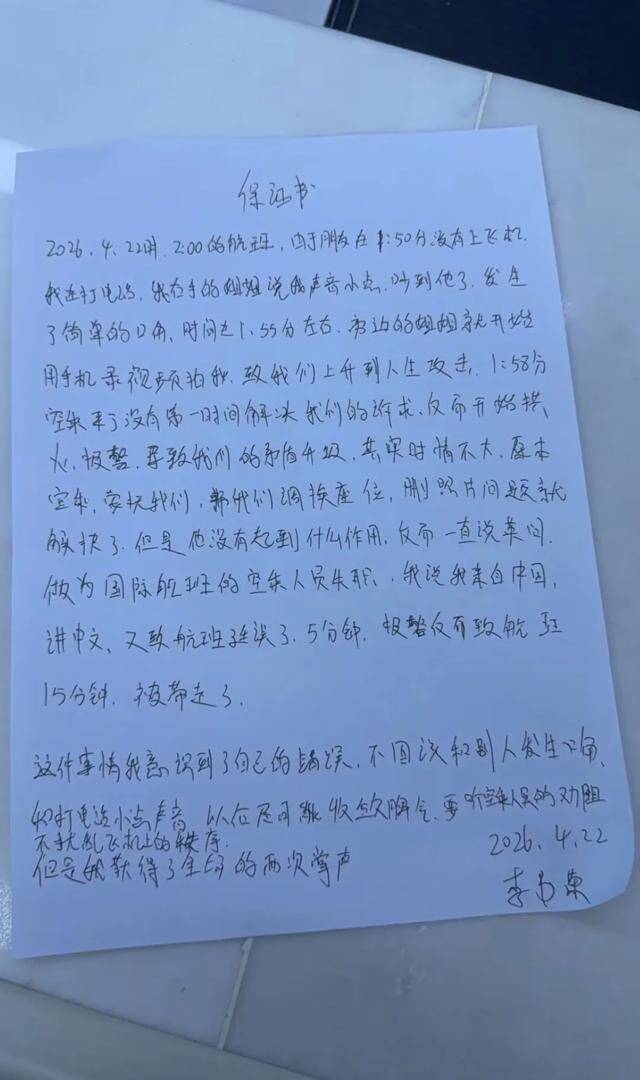 保证书
2026.4.22日. 2:00的航班, 由于朋友在1:50分没有上飞机.
我在打电话, 我右手的姐姐说我声音小点, 吵到他了. 发生
了简单的口角, 时间是1.55分左右. 旁边的姐姐就开始
用手机录视频拍我. 致我们上升到人生攻击. 1:58分
空乘来了没有第一时间解决我们的诉求, 反而开始拱
火, 报警. 导致我们的矛盾升级. 其实时情不大, 原本
空乘, 安抚我们, 帮我们调换座位, 删照片问题就
解决了. 但是他没有起到什么作用, 反而一直说英问.
做为国际航班的空乘人员失职, 我说我来自中国,
讲中文. 又致航班延误了. 5分钟. 报警仅有致航班
15分钟. 被带走了.
这件事情我意识到了自己的错误, 不因该和别人发生口角,
和打电话小点声音. 以后尽可能收敛脾气. 要听空乘人员的劝阻
不扰乱飞机上的秩序.
但是我获得了全场的两次掌声
2026.4.22
李